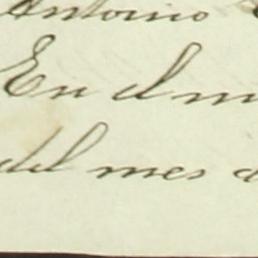 Antonio
En el m
del mes d